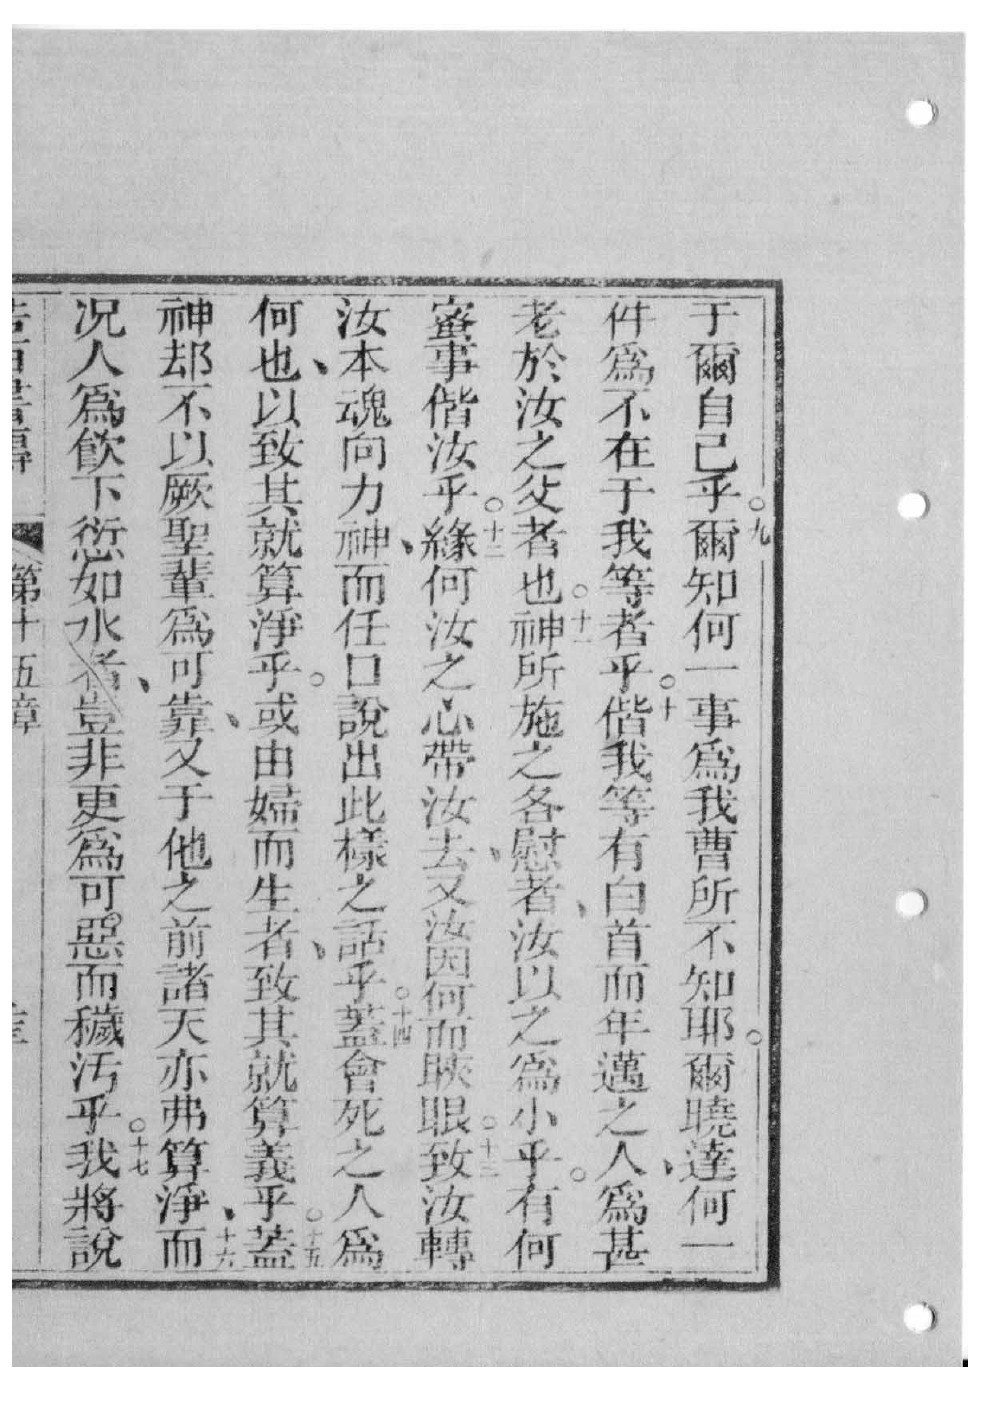 于爾自己乎○九爾知何一事爲我曹所不知耶○爾曉達何一
件爲不在于我等者乎○十偕我等有白首而年邁之人、爲甚
老於汝之父者也○十一神所施之各慰者、汝以之爲小乎○有何
蜜事偕汝乎○十二緣何汝之心帶汝去、又汝因何而䀹眼○十三致汝轉
汝本魂向力神、而任口說出此樣之話乎○十四蓋會死之人爲
何也、以致其就算淨乎○或由婦而生者、致其就算義乎○十五蓋
神却不以厥聖輩爲可靠、又于他之前諸天亦弗算淨、而十六
况人爲飲下愆如水者、豈非更爲可惡而穢污乎○十七我將說
第十五章